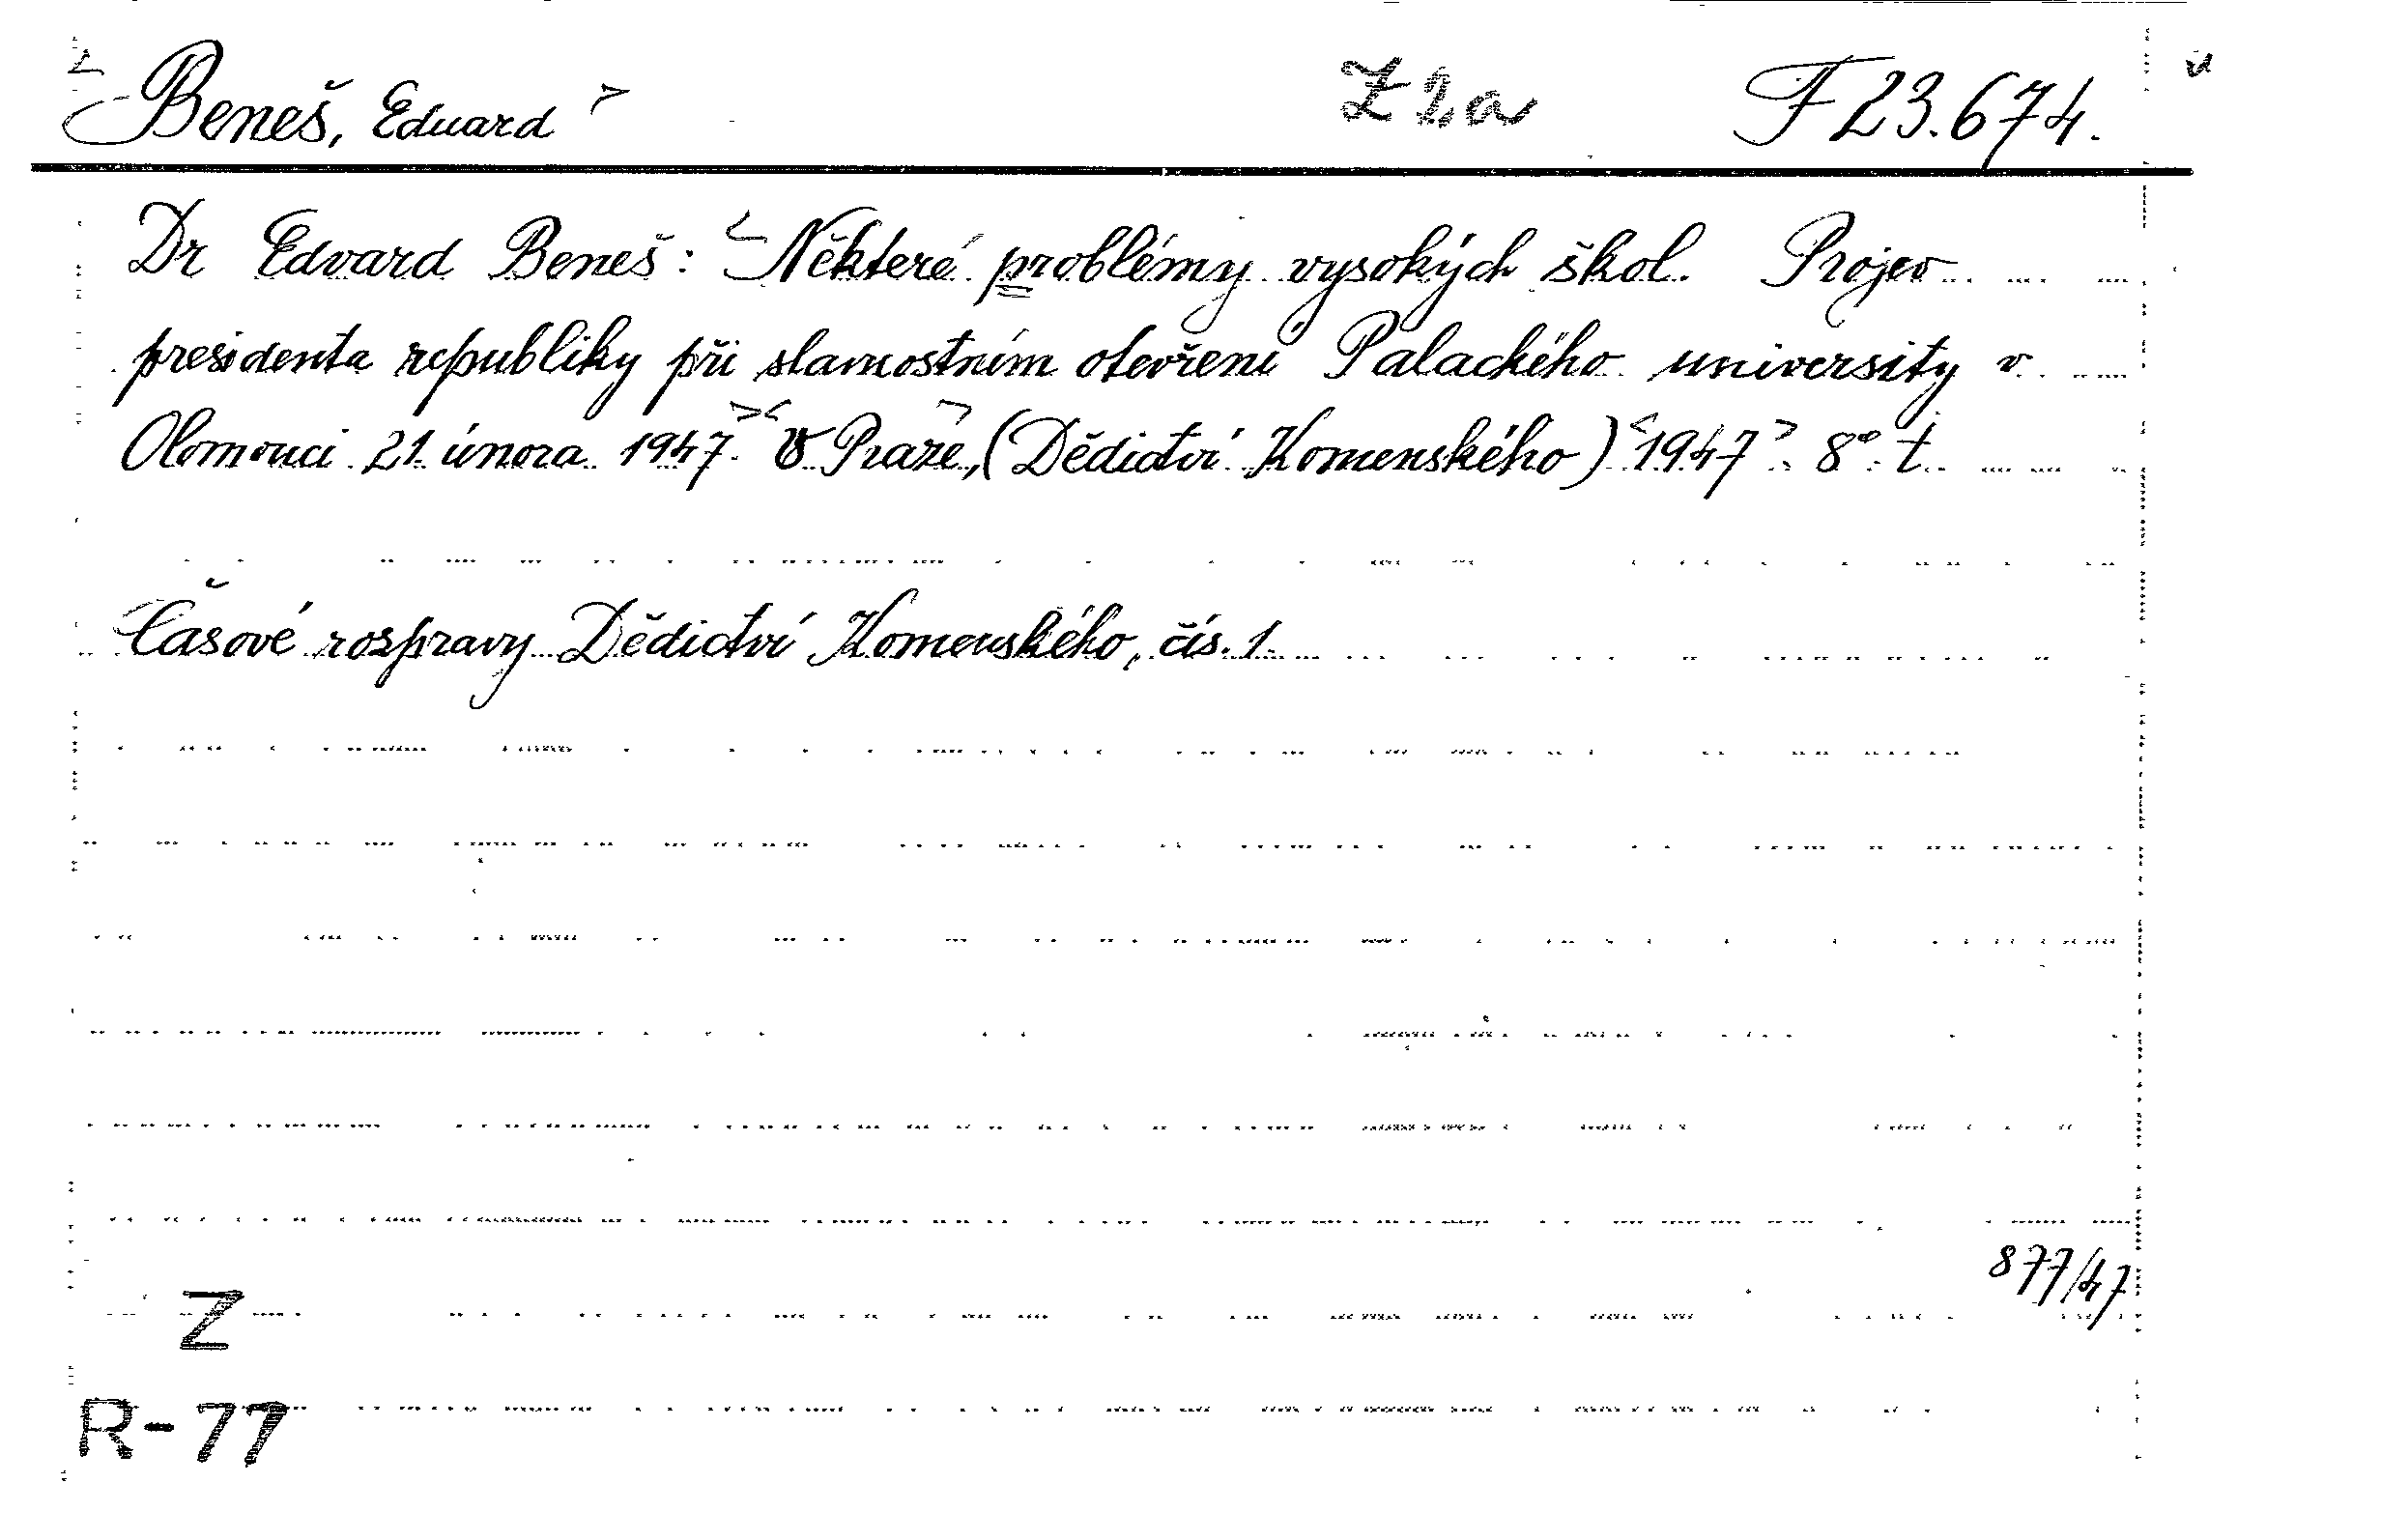 Beneš, Eduard Z 2a F 23.674.
Dr Edvard Beneš: Některé problémy vysokých škol. Projev
presidenta republiky při slavnostním otevření Palackého university v
Olomouci 21. února 1947. V Praze, (Dědictví Komenského) 1947. 8° t.
Časové rozpravy Dědictví Komenského, čís. 1.
877/47
Z
R-77